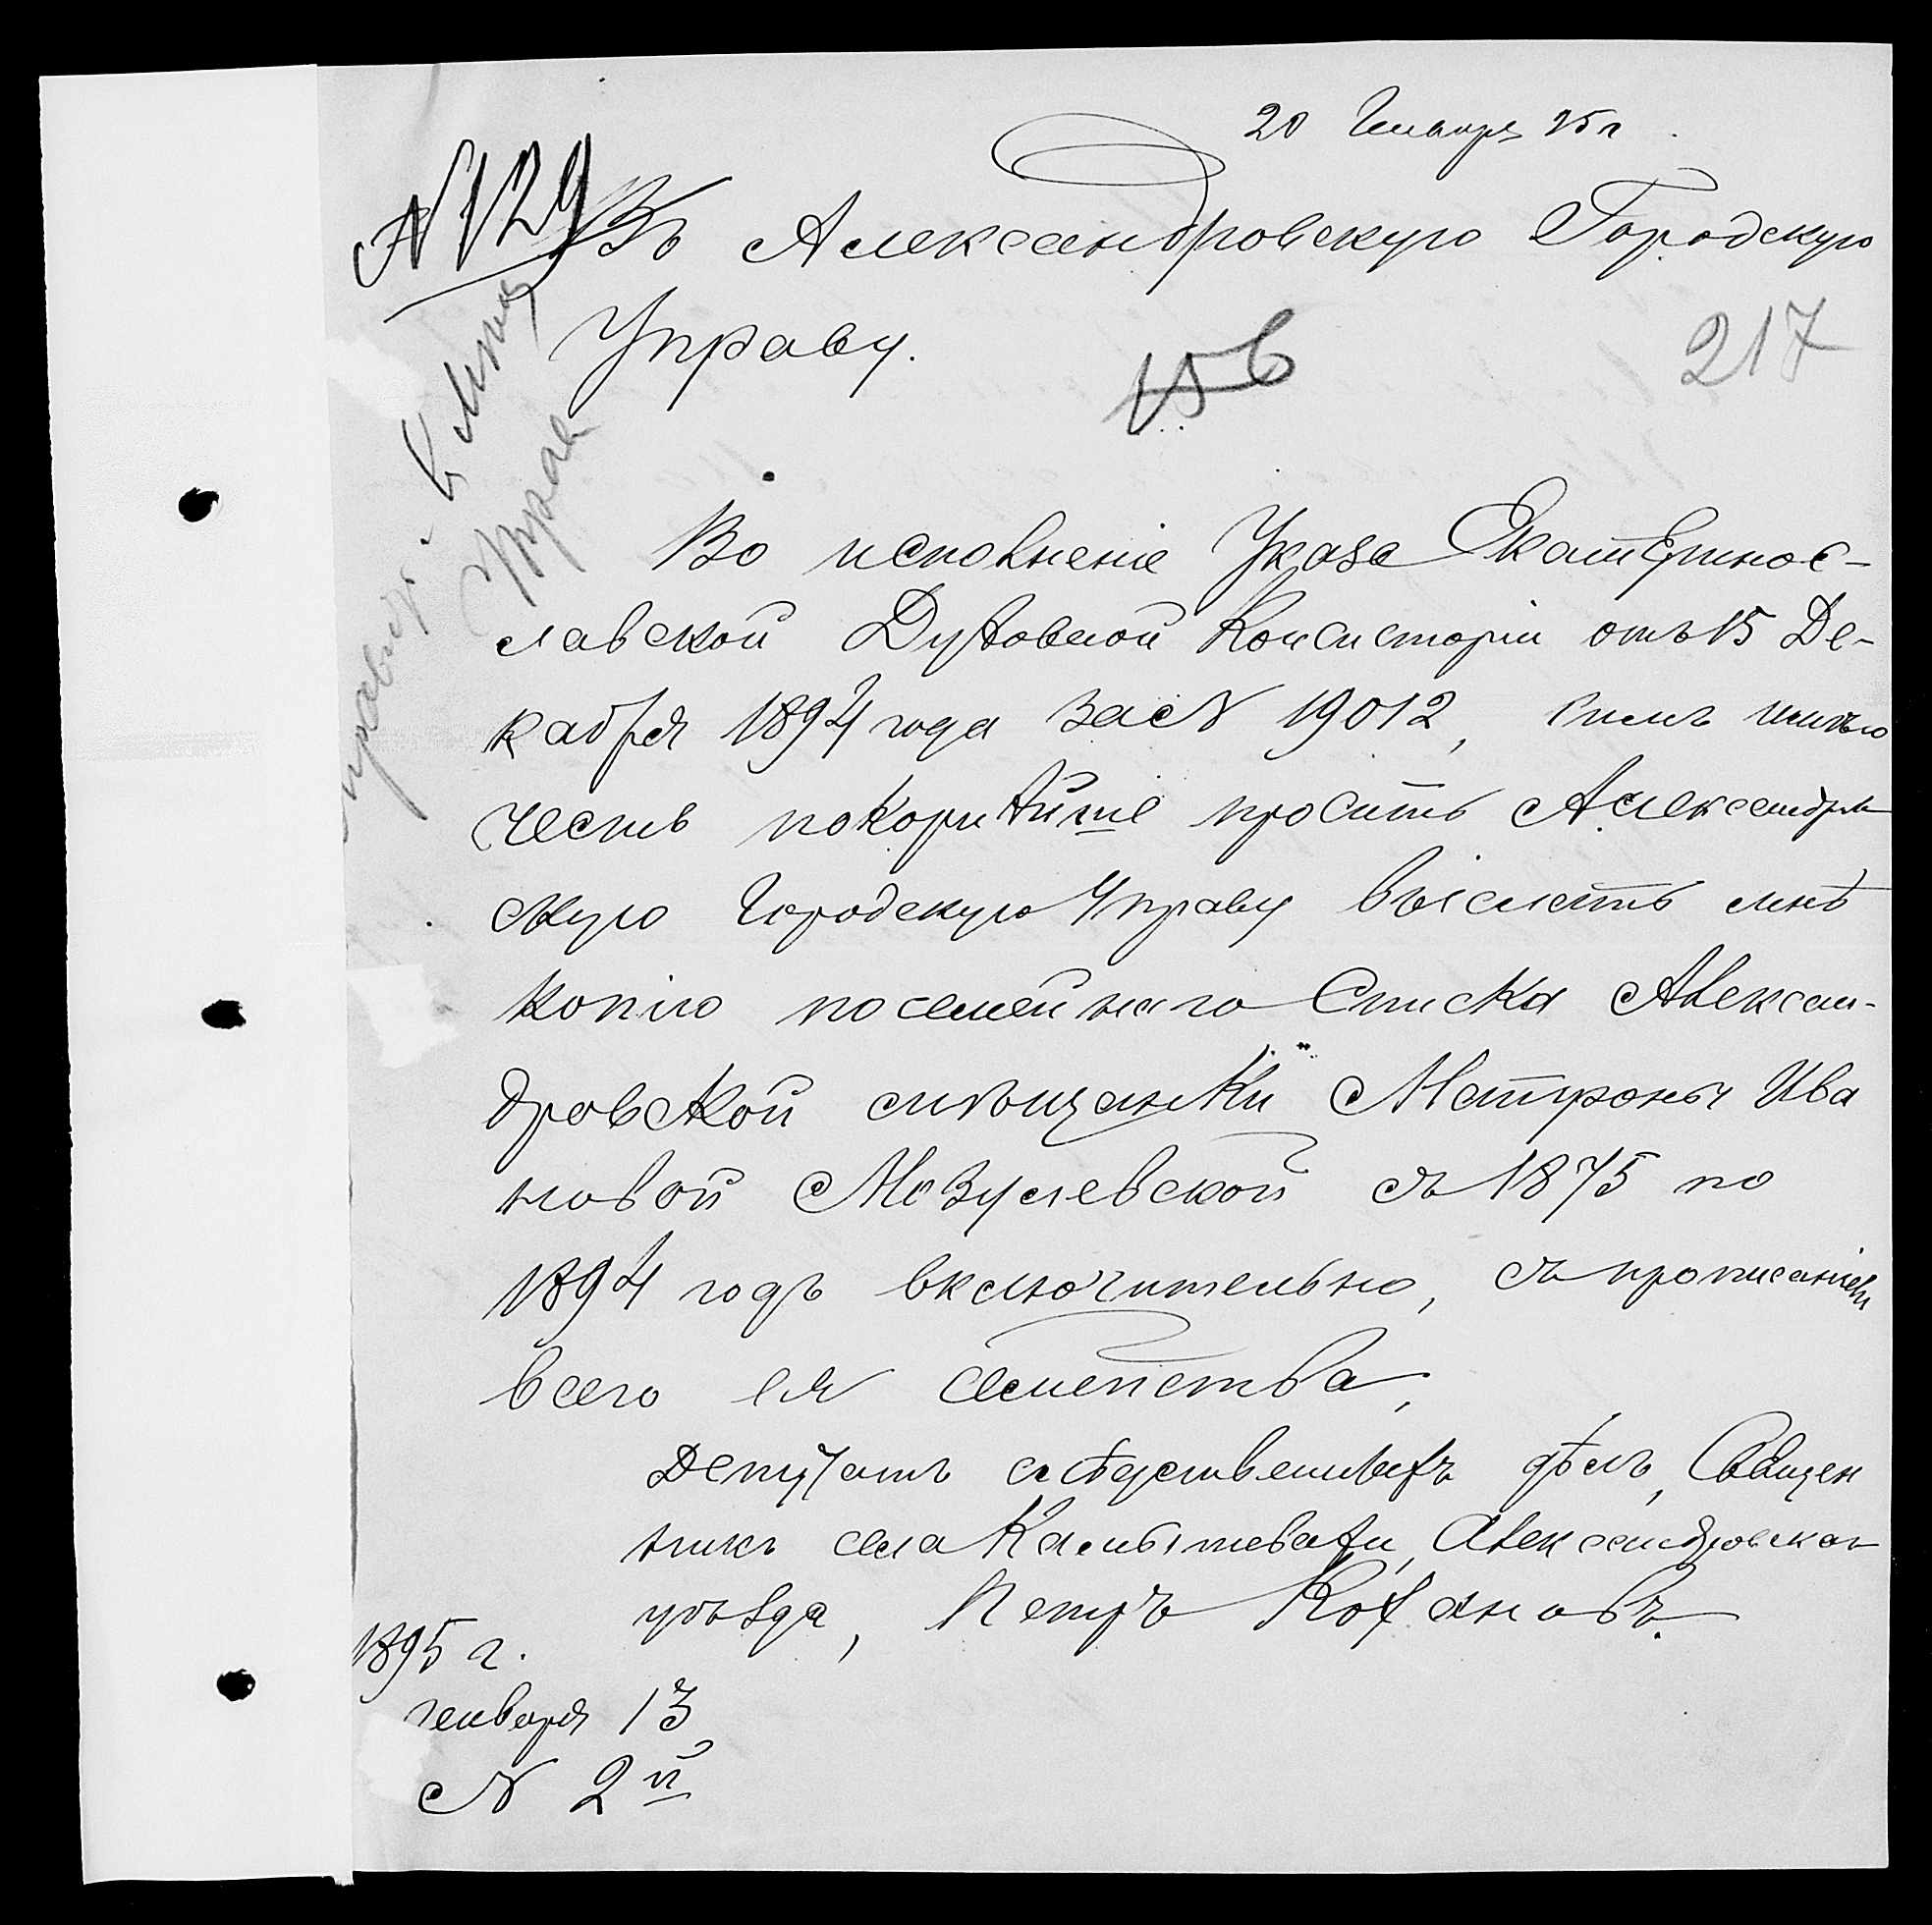 20 Января 95 г
№ 129
Въ Александровскую Городскую
Управу.
156
217
Во исполненіе Указа Екатеринос-
лавской Духовной Консисторіи отъ 15 Де-
кабря 1894 года за № 19012, симъ имѣю
честь покорнѣйше просить Александров
скую Городскую Управу выслать мнѣ
копію посемейнаго Списка Алексан-
дровской мѣщанки Матроны Ива
новой Мозулевской съ 1875 по
1894 годъ включительно, съ прописаніемъ
всего ея семейства,
Депутатъ слѣдственныхъ дѣлъ, Священ
никъ села Камышевахи, Александровскаго
уѣзда, Петръ Кохановъ.
1895 г.
января 13
№ 2й